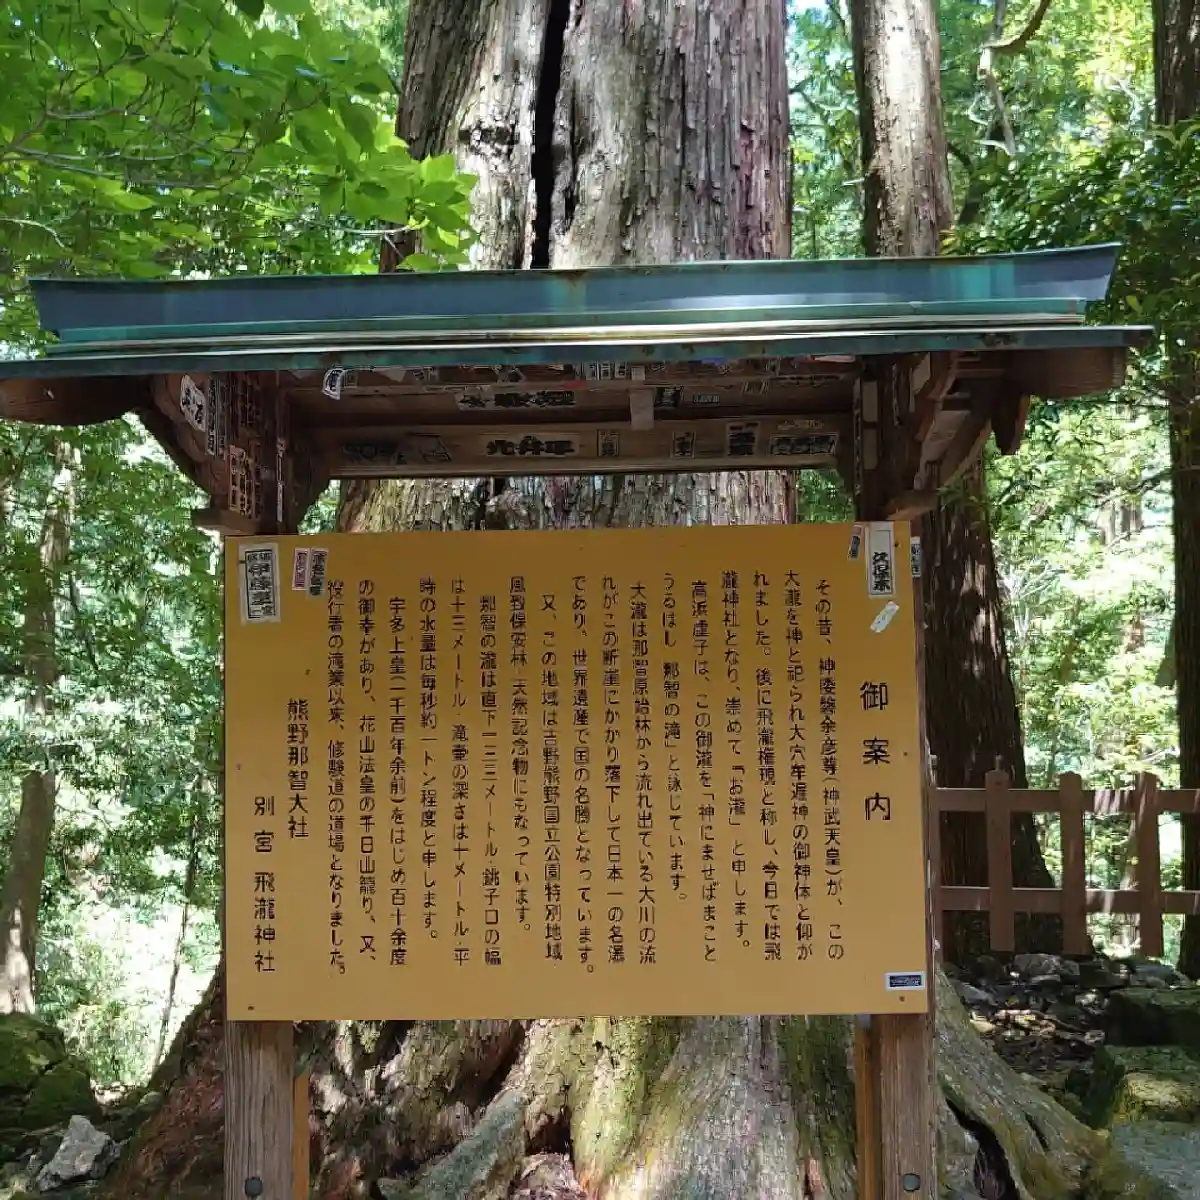 御案内
その昔、神倭磐余彦尊(神武天皇)が、この
大瀧を神と祀られ大穴牟遅神の御神体と仰が
れました。後に飛瀧権現と称し、今日では飛
瀧神社となり、崇めて「お瀧」と申します。
高浜虚子は、この御瀧を「神にませばまこと
うるはし 那智の滝」と詠じています。
大瀧は那智原始林から流れ出ている大川の流
れがこの断崖にかかり落下して日本一の名瀑
であり、世界遺産で国の名勝となっています。
又、この地域は吉野熊野国立公園特別地域
風致保安林 天然記念物にもなっています。
那智の瀧は直下一三三メートル・銚子口の幅
は十三メートル・滝壷の深さは十メートル・平
時の水量は毎秒約一トン程度と申します。
宇多上皇(一千百年余前)をはじめ百十余度
の御幸があり、花山法皇の千日山籠り、又、
役行者の滝業以来、修験道の道場となりました。
熊野那智大社
別宮 飛瀧神社